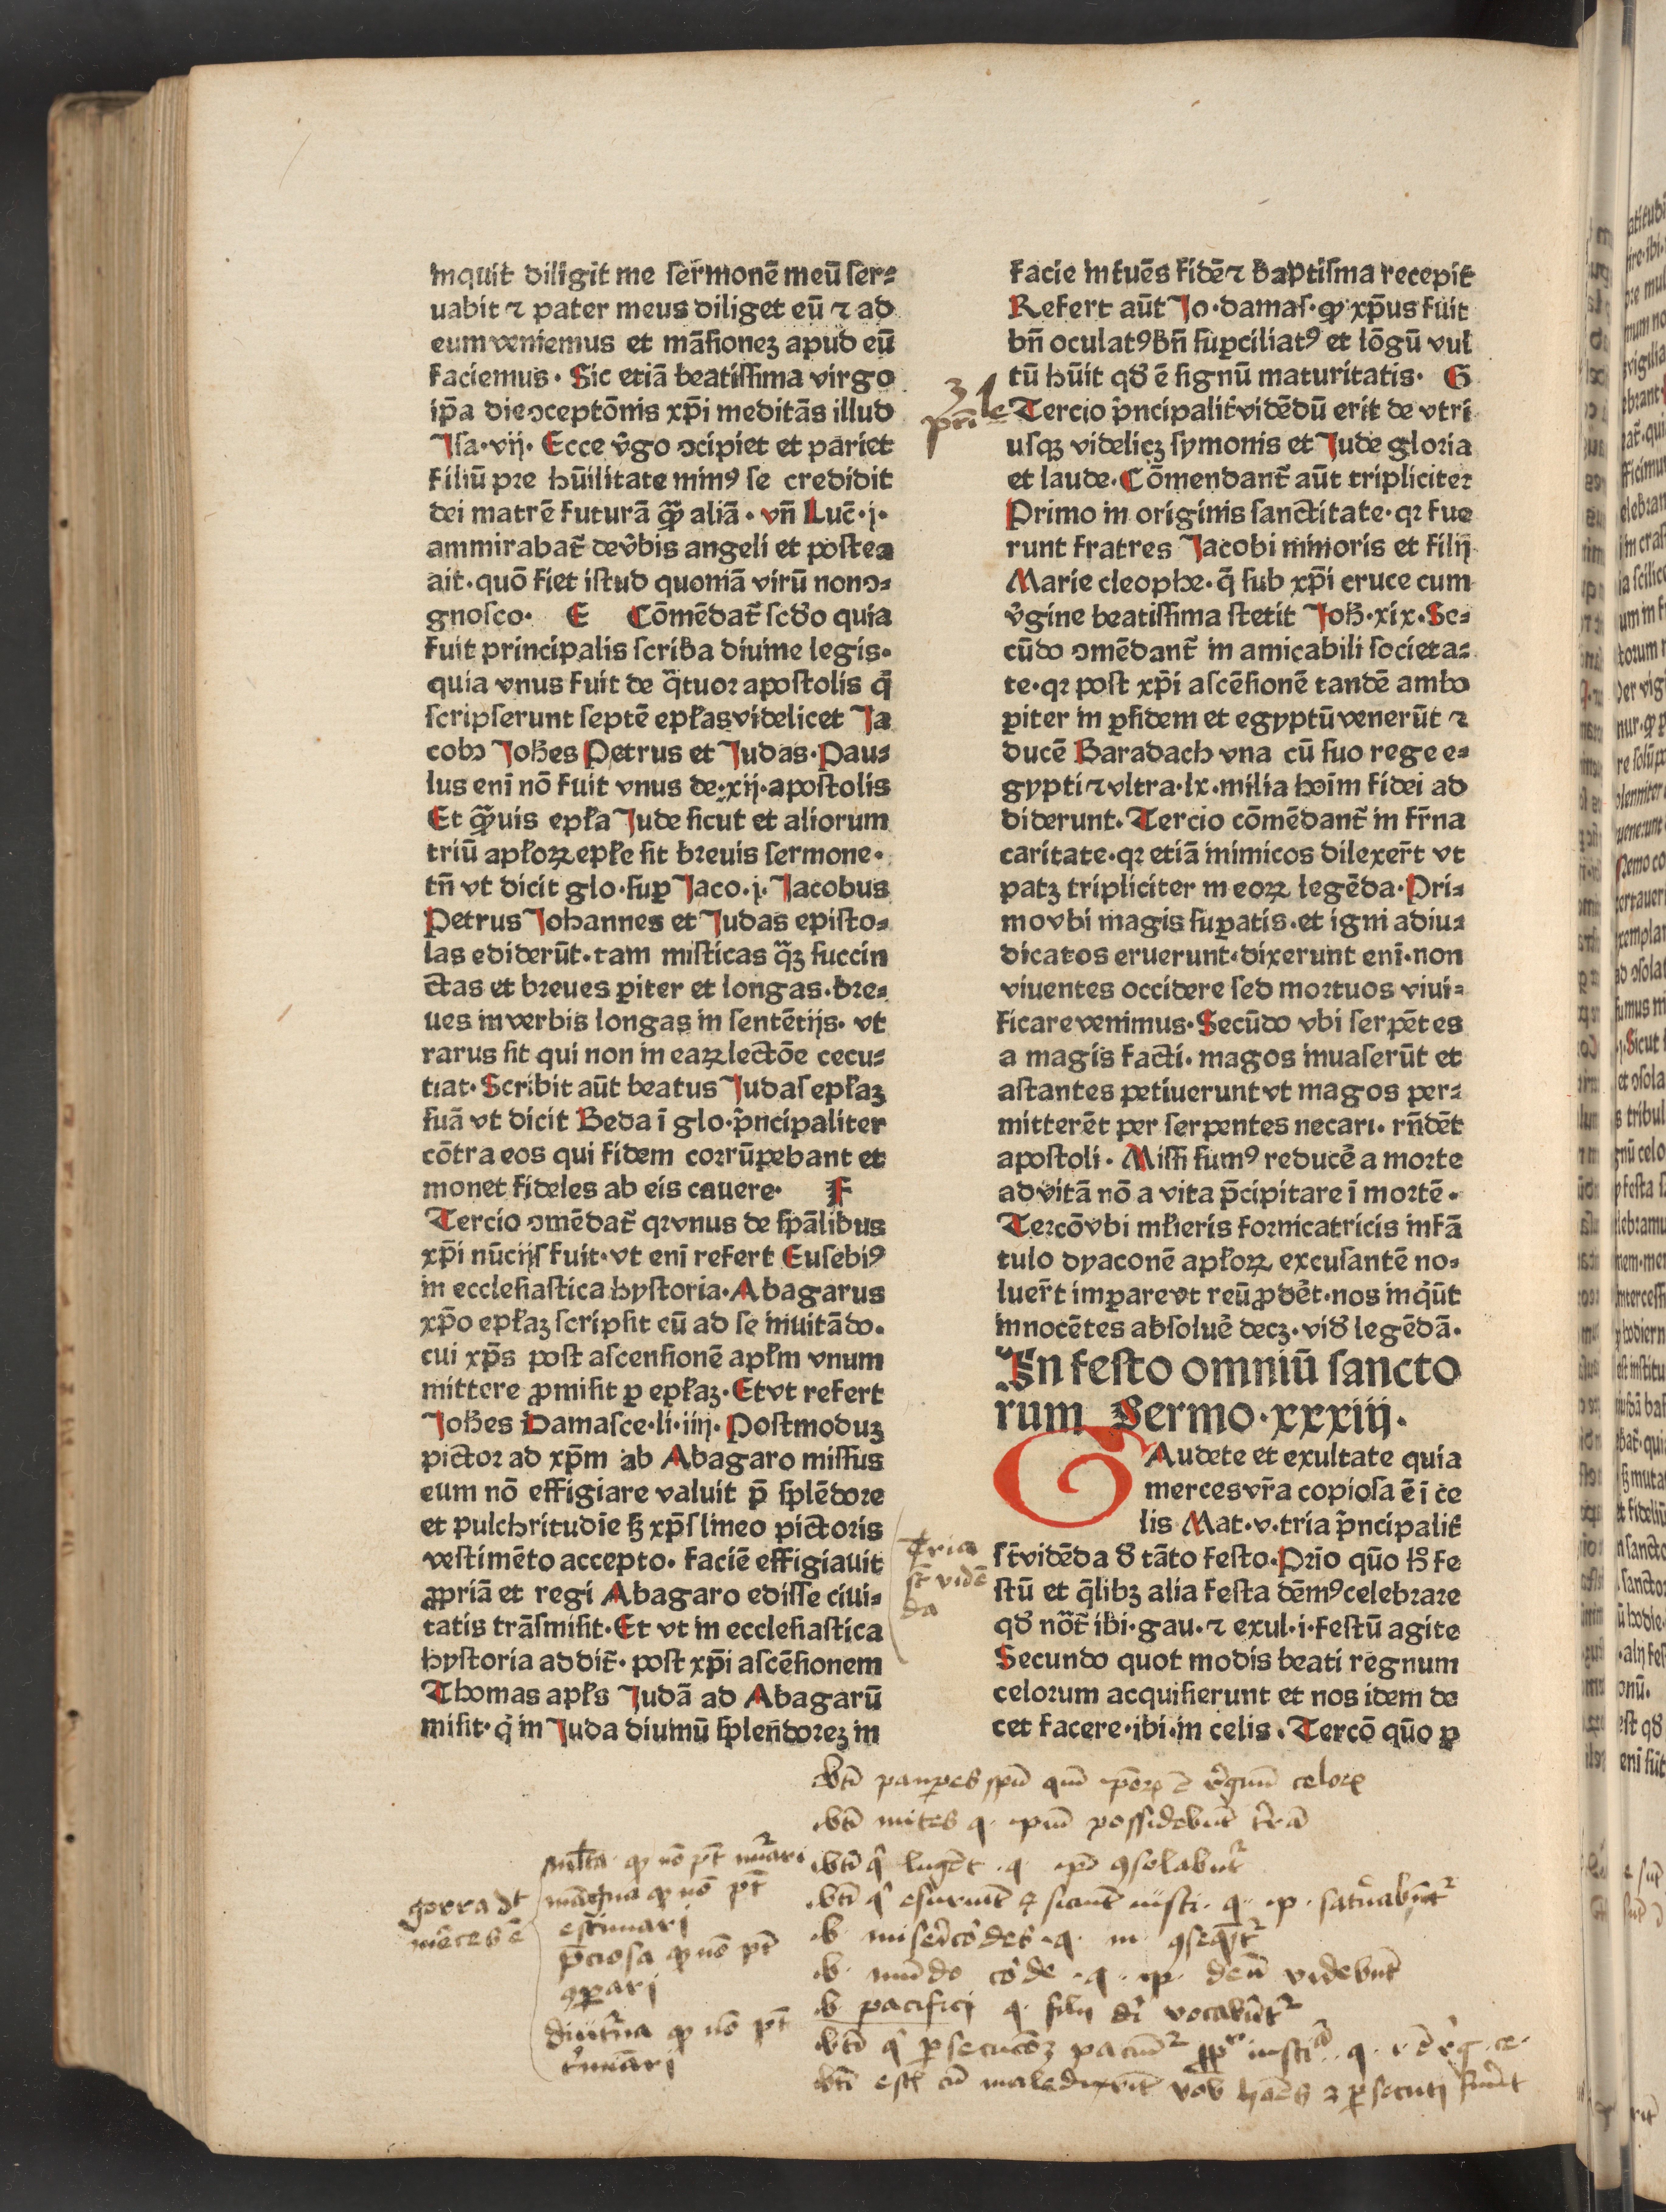 inquit diligit me sermonē meū ser⸗
uabit ⁊ pater meus diliget eū ⁊ ad
eum veniemus et māsionez apud eū
faciemus. Sic etiā beatissima virgo
ip̄a die ↄceptōnis xp̄i meditās illud
Isa.vij. Ecce v̄go ↄcipiet et pariet
filiū pre hūilitate minꝰ se credidit
dei matrē futurā qͣꝫ aliā. vn̄ Luc̄.j.
ammirabat̄ de v̄bis angeli et postea
ait. quō fiet istud quoniā virū non ↄ⸗
gnosco. E Cōmēdat̄ scd̄o quia
fuit principalis scriba diuine legis.
quia vnus fuit de qͣtuor apostolis q̄
scripserunt septē epl̄as videlicet Ja
cob' Joh̄es Petrus et Judas. Pau⸗
lus enī nō fuit vnus de.xij.apostolis
Et qͣꝫuis epl̄a Jude sicut et aliorum
triū apl̄oꝝ epl̄e sit breuis sermone.
tn̄ vt dicit glo.suꝑ Jaco.j. Jacobus
Petrus Johannes et Judas episto⸗
las ediderūt. tam misticas qͣꝫ succin
ctas et breues ꝑiter et longas. bre⸗
ues in verbis longas in sentētijs. vt
rarus sit qui non in eaꝝ lectōe cecu⸗
tiat. Scribit aūt beatus Judas epl̄aꝫ
suā vt dicit Beda ī glo. p̄ncipaliter
cōtra eos qui fidem corrūpebant et
monet fideles ab eis cauere. F
Tercio ↄmēdat̄ qꝛ vnus de sp̄alibus
xp̄i nūcijs fuit. vt enī refert Eusebiꝰ
in ecclesiastica hystoria. Abagarus
xp̄o epl̄aꝫ scripsit eū ad se inuitādo.
cui xp̄s post ascensionē apl̄m vnum
mittere ꝓmisit ꝑ epl̄aꝫ. Et vt refert
Joh̄es Damasce.li.iiij. Postmoduꝫ
pictor ad xp̄m ab Abagaro missus
eum nō effigiare valuit p̄ splēdore
et pulchritudīe sꝫ xp̄s lineo pictoris
vestimēto accepto. faciē effigiauit
ꝓpriā et regi Abagaro edisse ciui⸗
tatis trāsmisit. Et vt in ecclesiastica
hystoria addit̄. post xp̄i ascēsionem
Thomas apl̄s Judā ad Abagarū
misit. q̇ in Juda diuinū splen̄dorez in
facie intuēs fidē ⁊ baptisma recepit
Refert aūt Jo.damas. ꝙ xp̄us fuit
bn̄ oculatꝰ bn̄ suꝑciliatꝰ et lōgū vul
tū hūit qd̄ ē signū maturitatis. G
Tercio p̄ncipalit̄ vidēdū erit de vtri
usqꝫ videlicꝫ symonis et Jude gloria
et laude. Cōmendant̄ aūt tripliciter
Primo in originis sanctitate. qꝛ fue
runt fratres Jacobi minoris et filij
Marie cleophe. q̄ sub xp̄i cruce cum
v̄gine beatissima stetit Joh̄.xix. Se⸗
cūdo ↄmēdant̄ in amicabili societa⸗
te. qꝛ post xp̄i ascēsionē tandē ambo
ꝑiter in ꝑsidem et egyptū venerūt ⁊
ducē Baradach vna cū suo rege e⸗
gypti ⁊ vltra.lx.milia hoīm fidei ad
diderunt. Tercio cōmēdant̄ in fr̄na
caritate. qꝛ etiā inimicos dilexer̄t vt
patꝫ tripliciter in eoꝝ legēda. Pri⸗
mo vbi magis suꝑatis. et igni adiu⸗
dicatos eruerunt. dixerunt enī. non
viuentes occidere sed mortuos viui⸗
ficare venimus. Secūdo vbi serpētes
a magis facti. magos inuaserūt et
astantes petiuerunt vt magos per⸗
mitterēt per serpentes necari. rn̄dēt
apostoli. Missi sumꝰ reducē a morte
ad vitā nō a vita p̄cipitare ī mortē.
Tercō vbi ml̄ieris fornicatricis infā
tulo dyaconē apl̄oꝝ excusantē no⸗
luer̄t imꝑare vt reū ꝓdēt. nos inq̇ūt
innocētes absoluē decꝫ. vid̄ legēdā.
In festo omniū sancto
rum Sermo.xxxiij.
GAudete et exultate quia
merces vr̄a copiosa ē ī ce
lis Mat.v. tria p̄ncipalit̄
st̄ vidēda d̄ tāto festo. Prīo quō h̄ fe
stū et q̄libꝫ alia festa dēmꝰ celebrare
qd̄ not̄ ibi.gau.⁊ exul.i.festū agite
Secundo quot modis beati regnum
celorum acquisierunt et nos idem de
cet facere. ibi.in celis. Tercō qūo ꝑ
3 le
Tria
st̄ vidē
da
bt̄i pauꝑes spū qm̄ ip̄oꝝ ē r̄gnū celoꝝ
bt̄i mites q. ip̄i possidebūt t̄rā
bt̄i q̄ lugēt .q. ip̄i ꝯsolabūt̄
bt̄i q̄ esuriūt ⁊ siciūt iusti. q. ip. satur̄abūt̄
b. mise͛cōrdes .q. m ꝯseqūt̄
b. mūdo cōde .q. ip. deū videbūt
b. pacifici q. filij di vocabūt̄
bt̄i q̄ ꝑsecucōꝫ paciūt̄ ꝓp iusticiā. q. i. ē r̄g. ce.
bt̄i est̄ cū maledixerīt vob hōīes ⁊ ꝑsecuti fūīt
ml̄ta ꝙ nō pt̄ nūari
magna ꝙ nō pt̄
estimari
p̄ciosa ꝙ nō pt̄
ꝯꝑari
diut̄na ꝙ nō pt̄
t̄minari
gorra dt
m̄ces ē